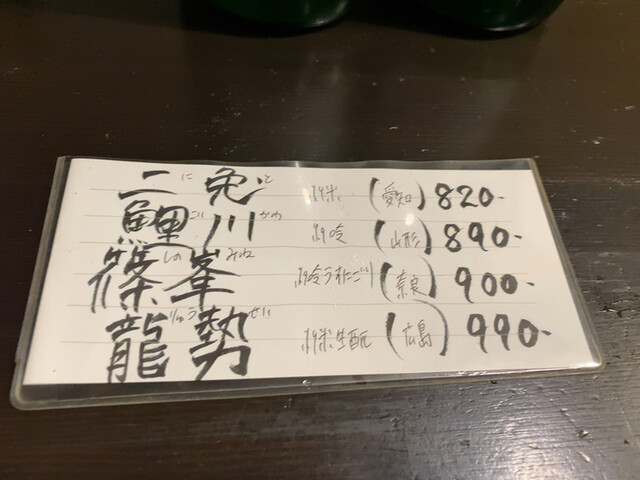 二兎 にと 純米 (愛知) 820-
鯉川 こいかわ 純吟 (山形) 890-
篠峯 しのみね 純吟うすにごり (奈良) 900-
龍勢 りゅうせい 純米生酛 (広島) 990-